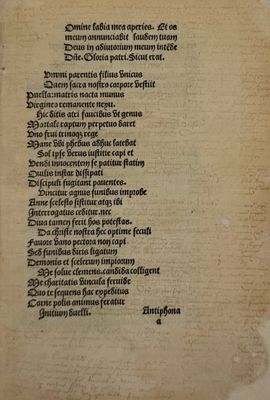 Omine labia mea aperies. Et os
meum annunciabit laudem tuam
Deus in adiutorium meum intẽde
Dñe. Gloria patri. Sicut erat.
Ummi parentis filius unicus
Quem sacra nostro corpore vestiit
Puella: matris nacta munus
Virgineo remanente nexu.
Hic ditis atri faucibus ut genus
Mortale raptum perpetuo daret
Uno frui trinoqz rege
Mane ubi phebus adhuc latebat
Sol ipse verus iustitie capi et
Vendi innocentem se patitur statim
Ouilis instar dissipati
Discipuli fugitant pauentes.
Vincitur agnus funibus improbe
Anne scelesto sistitur atqz ibi
Interrogatus ceditur. nec
Diua tamen ferit hos potestas.
Da christe nostra hec optime seculi
Fauore vano pectora non capi
Sed funibus diris ligatum
Demonis et scelerum impiorum
Me solue clemens. candida colligent
Me charitatis vincula feruide
Quo te sequens hac expeditus
Carne polis animus feratur
Antiphona
a